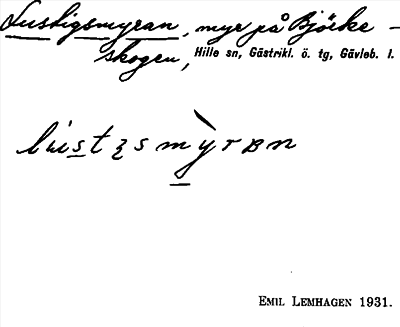 Lustigsmyran, myr på Björke-
skogen, Hille sn, Gästrikl. ö. tg, Gävleb. l.
EMIL LEMHAGEN 1931.